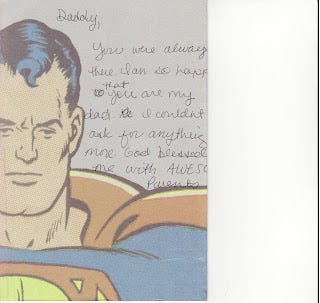 Daddy,
You were always
there I am so happ
that
you are my
dad. I couldn't
ask for anything
more God blessed
me with AWESO
Parents